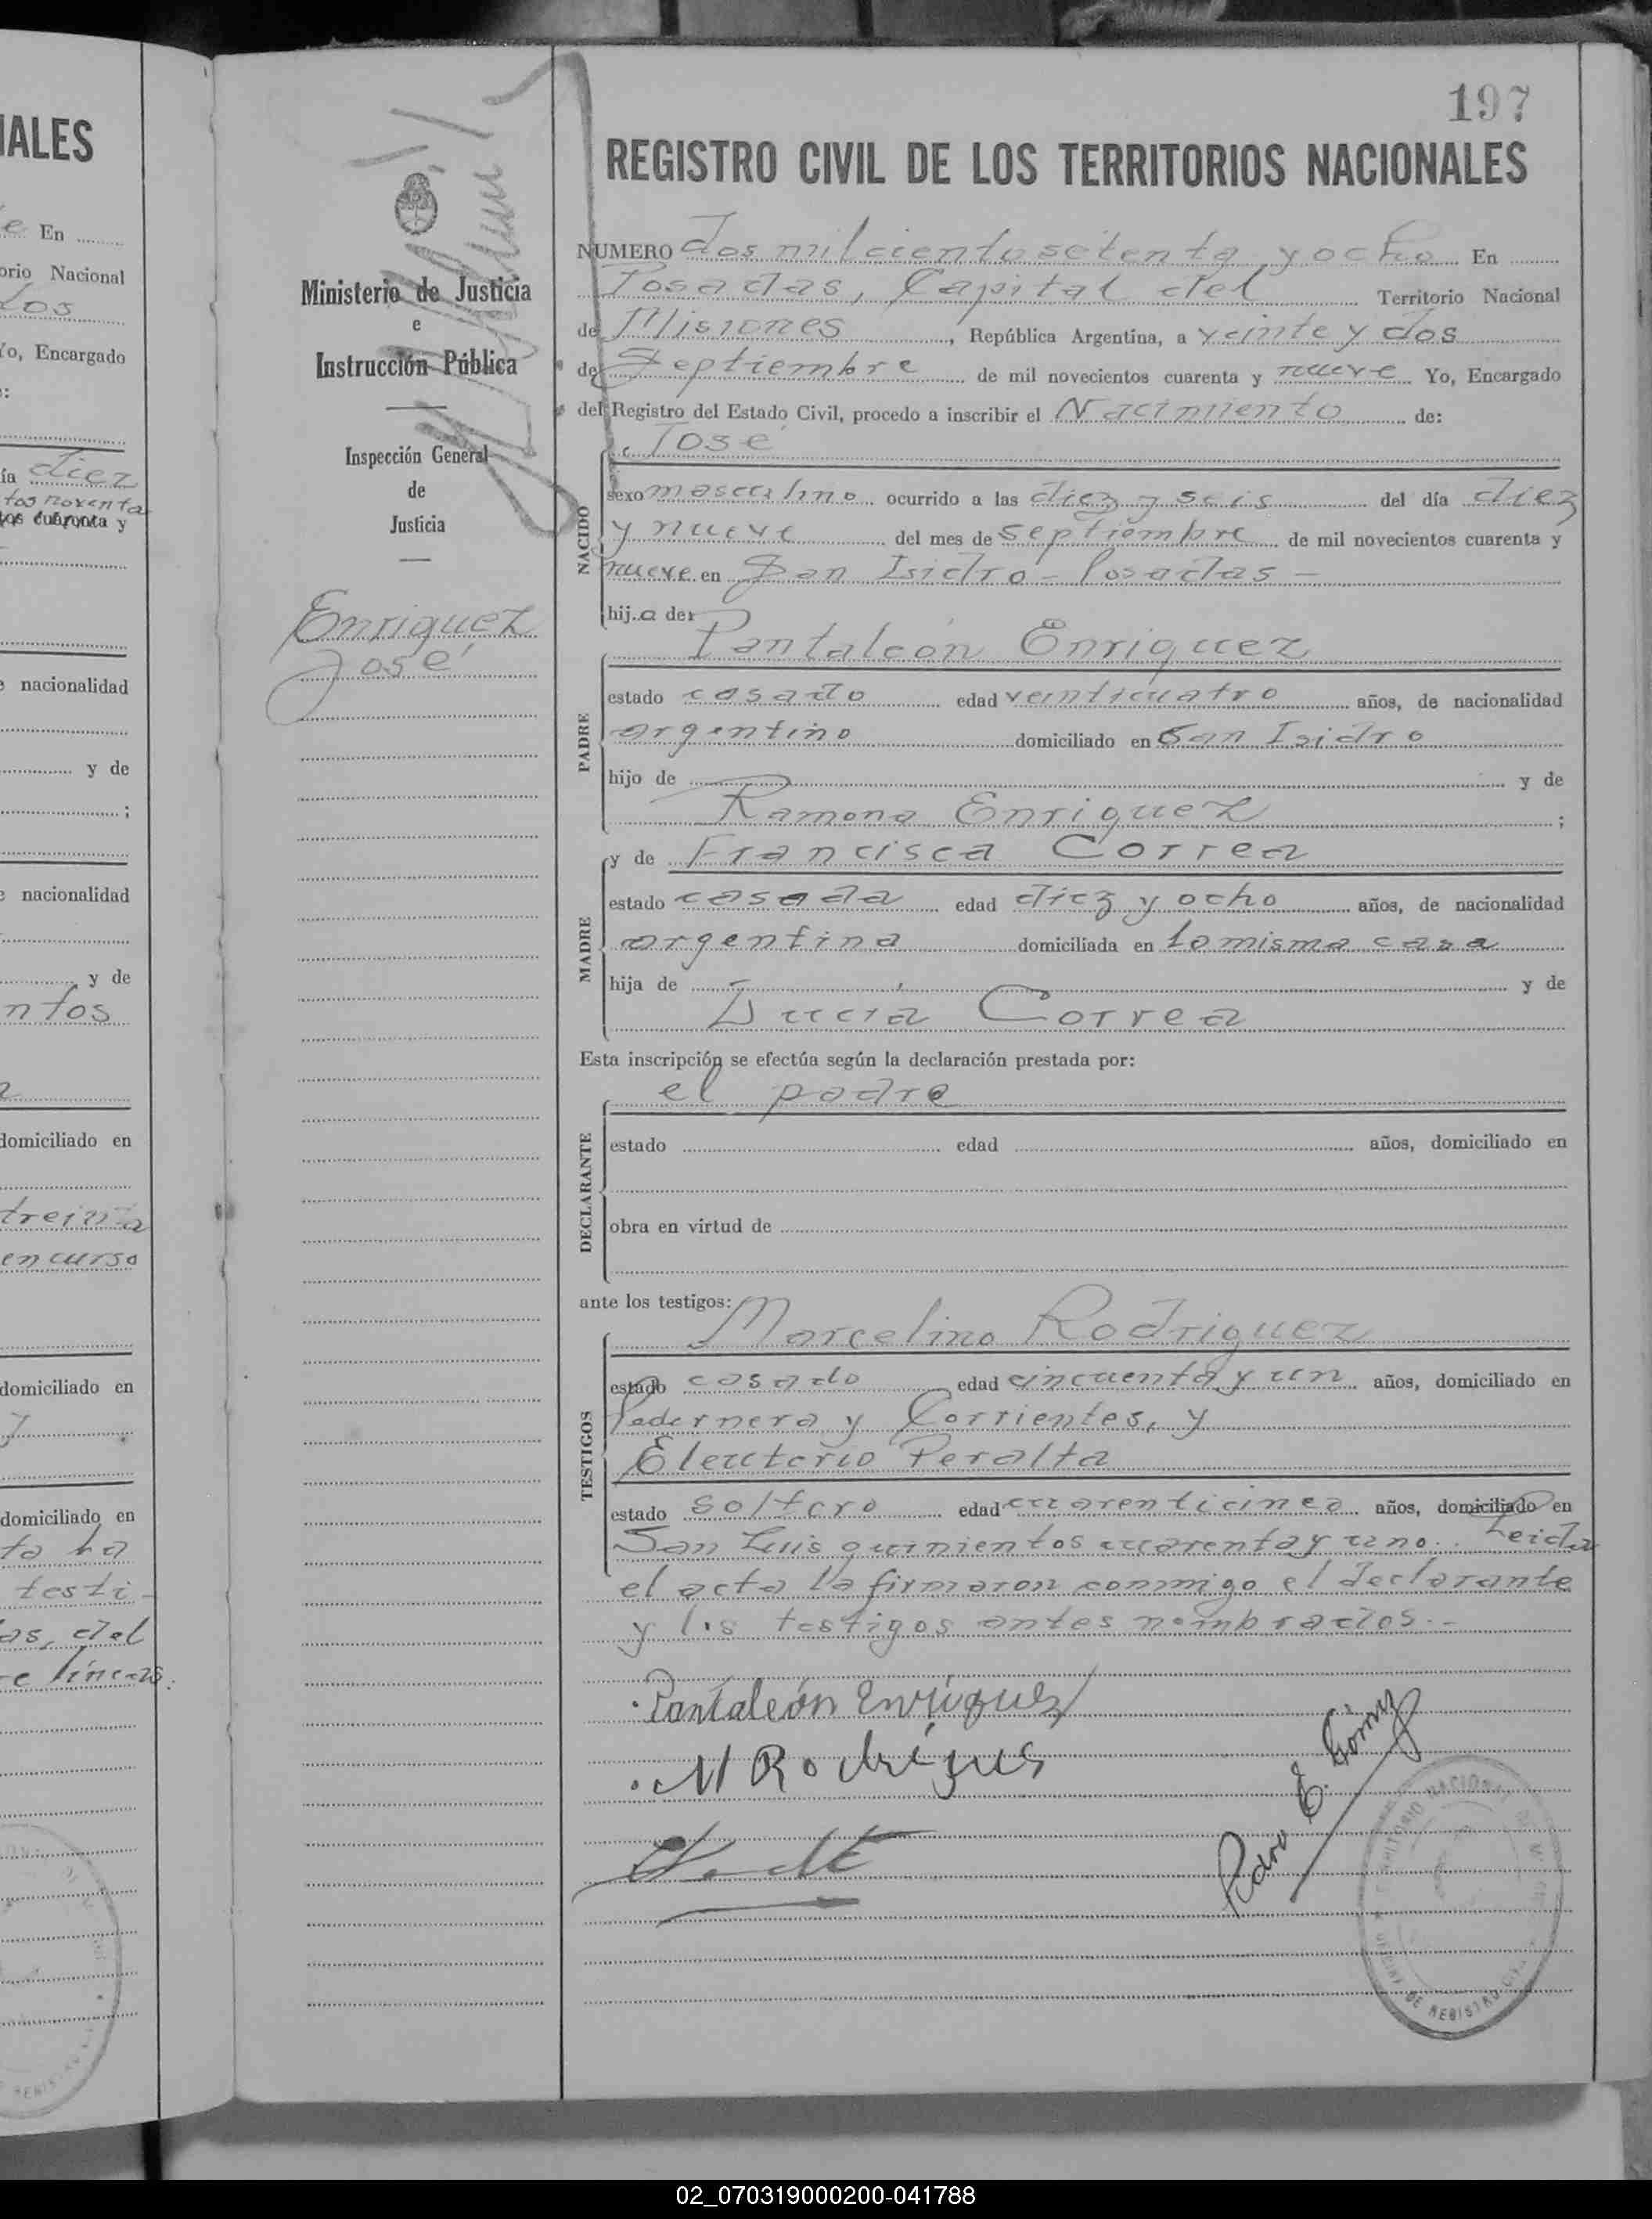 IALES
e En
orio Nacional
dos
Yo, Encargado
:
ía diez
tos noventa
tos cuaronta y
e nacionalidad
y de
;
e nacionalidad
y de
ntos
domiciliado en
treinta
en curso
domiciliado en
domiciliado en
to ha
testi-
as, del
e líneas.
Ministerio de Justicia
e
Instrucción Pública
Inspección General
de
Justicia
Enriquez
José
197
REGISTRO CIVIL DE LOS TERRITORIOS NACIONALES
NUMERO dos mil ciento setenta y ocho En
Posadas, Capital del Territorio Nacional
de Misiones, República Argentina, a veinte y dos
de Septiembre de mil novecientos cuarenta y nueve Yo, Encargado
del Registro del Estado Civil, procedo a inscribir el Nacimiento de:
José
NACIDO
sexo masculino ocurrido a las diez y seis del día diez
y nueve del mes de septiembre de mil novecientos cuarenta y
nueve en San Isidro - Posadas -
hijo de:
Pantaleón Enriquez
PADRE
estado casado edad veinticuatro años, de nacionalidad
argentino domiciliado en San Isidro
hijo de y de
Ramona Enriquez ;
y de Francisca Correa
MADRE
estado casada edad diez y ocho años, de nacionalidad
argentina domiciliada en la misma casa
hija de y de
Lucía Correa
Esta inscripción se efectúa según la declaración prestada por:
el padre
DECLARANTE
estado edad años, domiciliado en
obra en virtud de
ante los testigos:
Marcelino Rodriguez
TESTIGOS
estado casado edad cincuenta y un años, domiciliado en
Pedernera y Corrientes, y
Eleuterio Peralta
estado soltero edad cuarenticinco años, domiciliado en
San Luis quinientos cuarenta y uno. Leida
el acta la firmaron conmigo el declarante
y los testigos antes nombrados.-
Pantaleón Enriquez
M Rodrigues
Pedro E. Gómez
TERRITORIO NACIONAL DE
OFICINA DE REGISTRO CIVIL
02_070319000200-041788